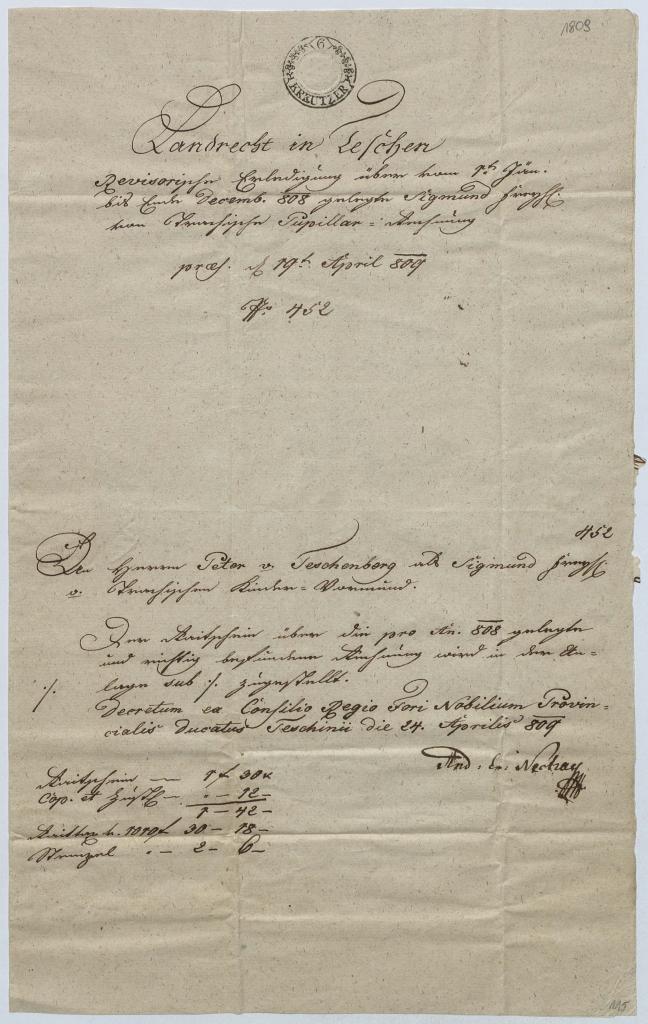 1809
6
KREUTZER
Landrecht in Teschen
Revisorische Erledigung über vom 1t Jän.
bis Ende Decemb. 808 gelegte Sigmund Freyh.
von Trachische Pupillar-Rechnung
præs. d 19t April 809
No 452
452
An Herrn Peter v. Teschenberg als Sigmund Freyh.
v. Trachischen Kinder-Vormund.
Der Raitschein über die pro An. 808 gelegte
und richtig befundene Rechnung wird in der An-
./. lage sub ./. zugestellt.
Decretum ex Consilio Regio Fori Nobilium Provin-
cialis Ducatus Teschinii die 24. Aprilis 809
Raitschein — 1 f 30 x
Cop. et Zustl — . — 12 —
1 — 42 —
30 — 18 —
Stempel . — 2 — 6 —
115